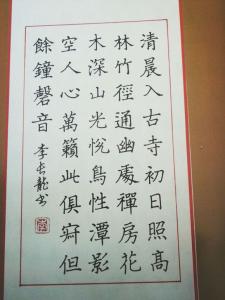 清晨入古寺初日照高
林竹徑通幽處禪房花
木深山光悅鳥性潭影
空人心萬籟此俱寂但
餘鐘磬音 李长龍书